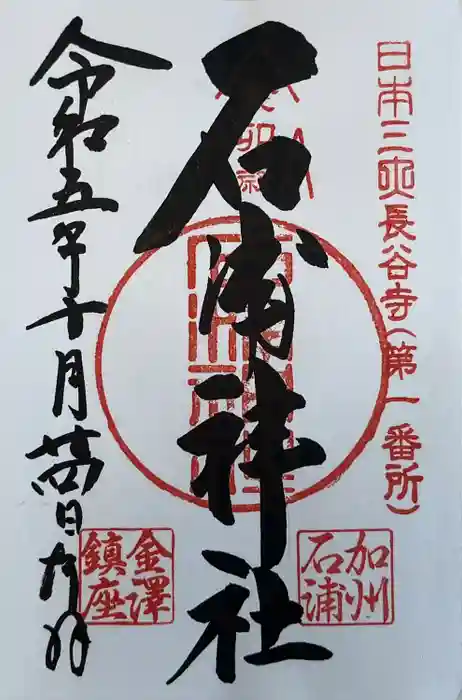 日本三
長谷寺(第一番所)
卯
石浦神社
加州
石浦
令和五年十月廿四日奉拝
金澤
鎮座